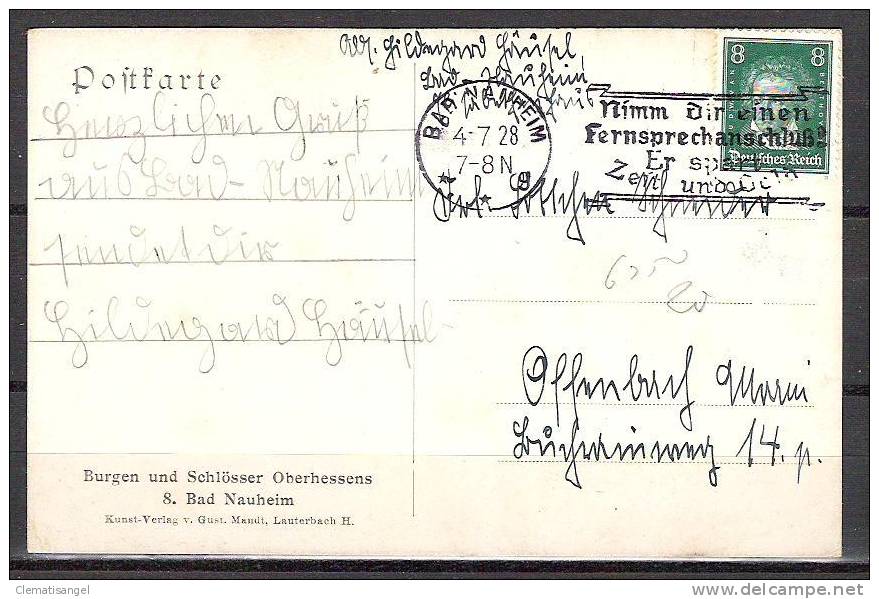 Postkarte
Herzlichen Gruß
aus Bad-Nauheim
sendet dir
Hildegard Häusel
Burgen und Schlösser Oberhessens
8. Bad Nauheim
Kunst-Verlag v. Gust. Mandt, Lauterbach H.
Abs. Hildegard Häusel
Bad-Nauheim
BAD NAUHEIM
4-7 28
7-8 N
8 8
Deutsches Reich
Nimm dir einen
Fernsprechanschluß!
Er spart
Zeit und
Offenbach Main
Buchrainweg 14. p.
Clematisangel
www.delcampe.net